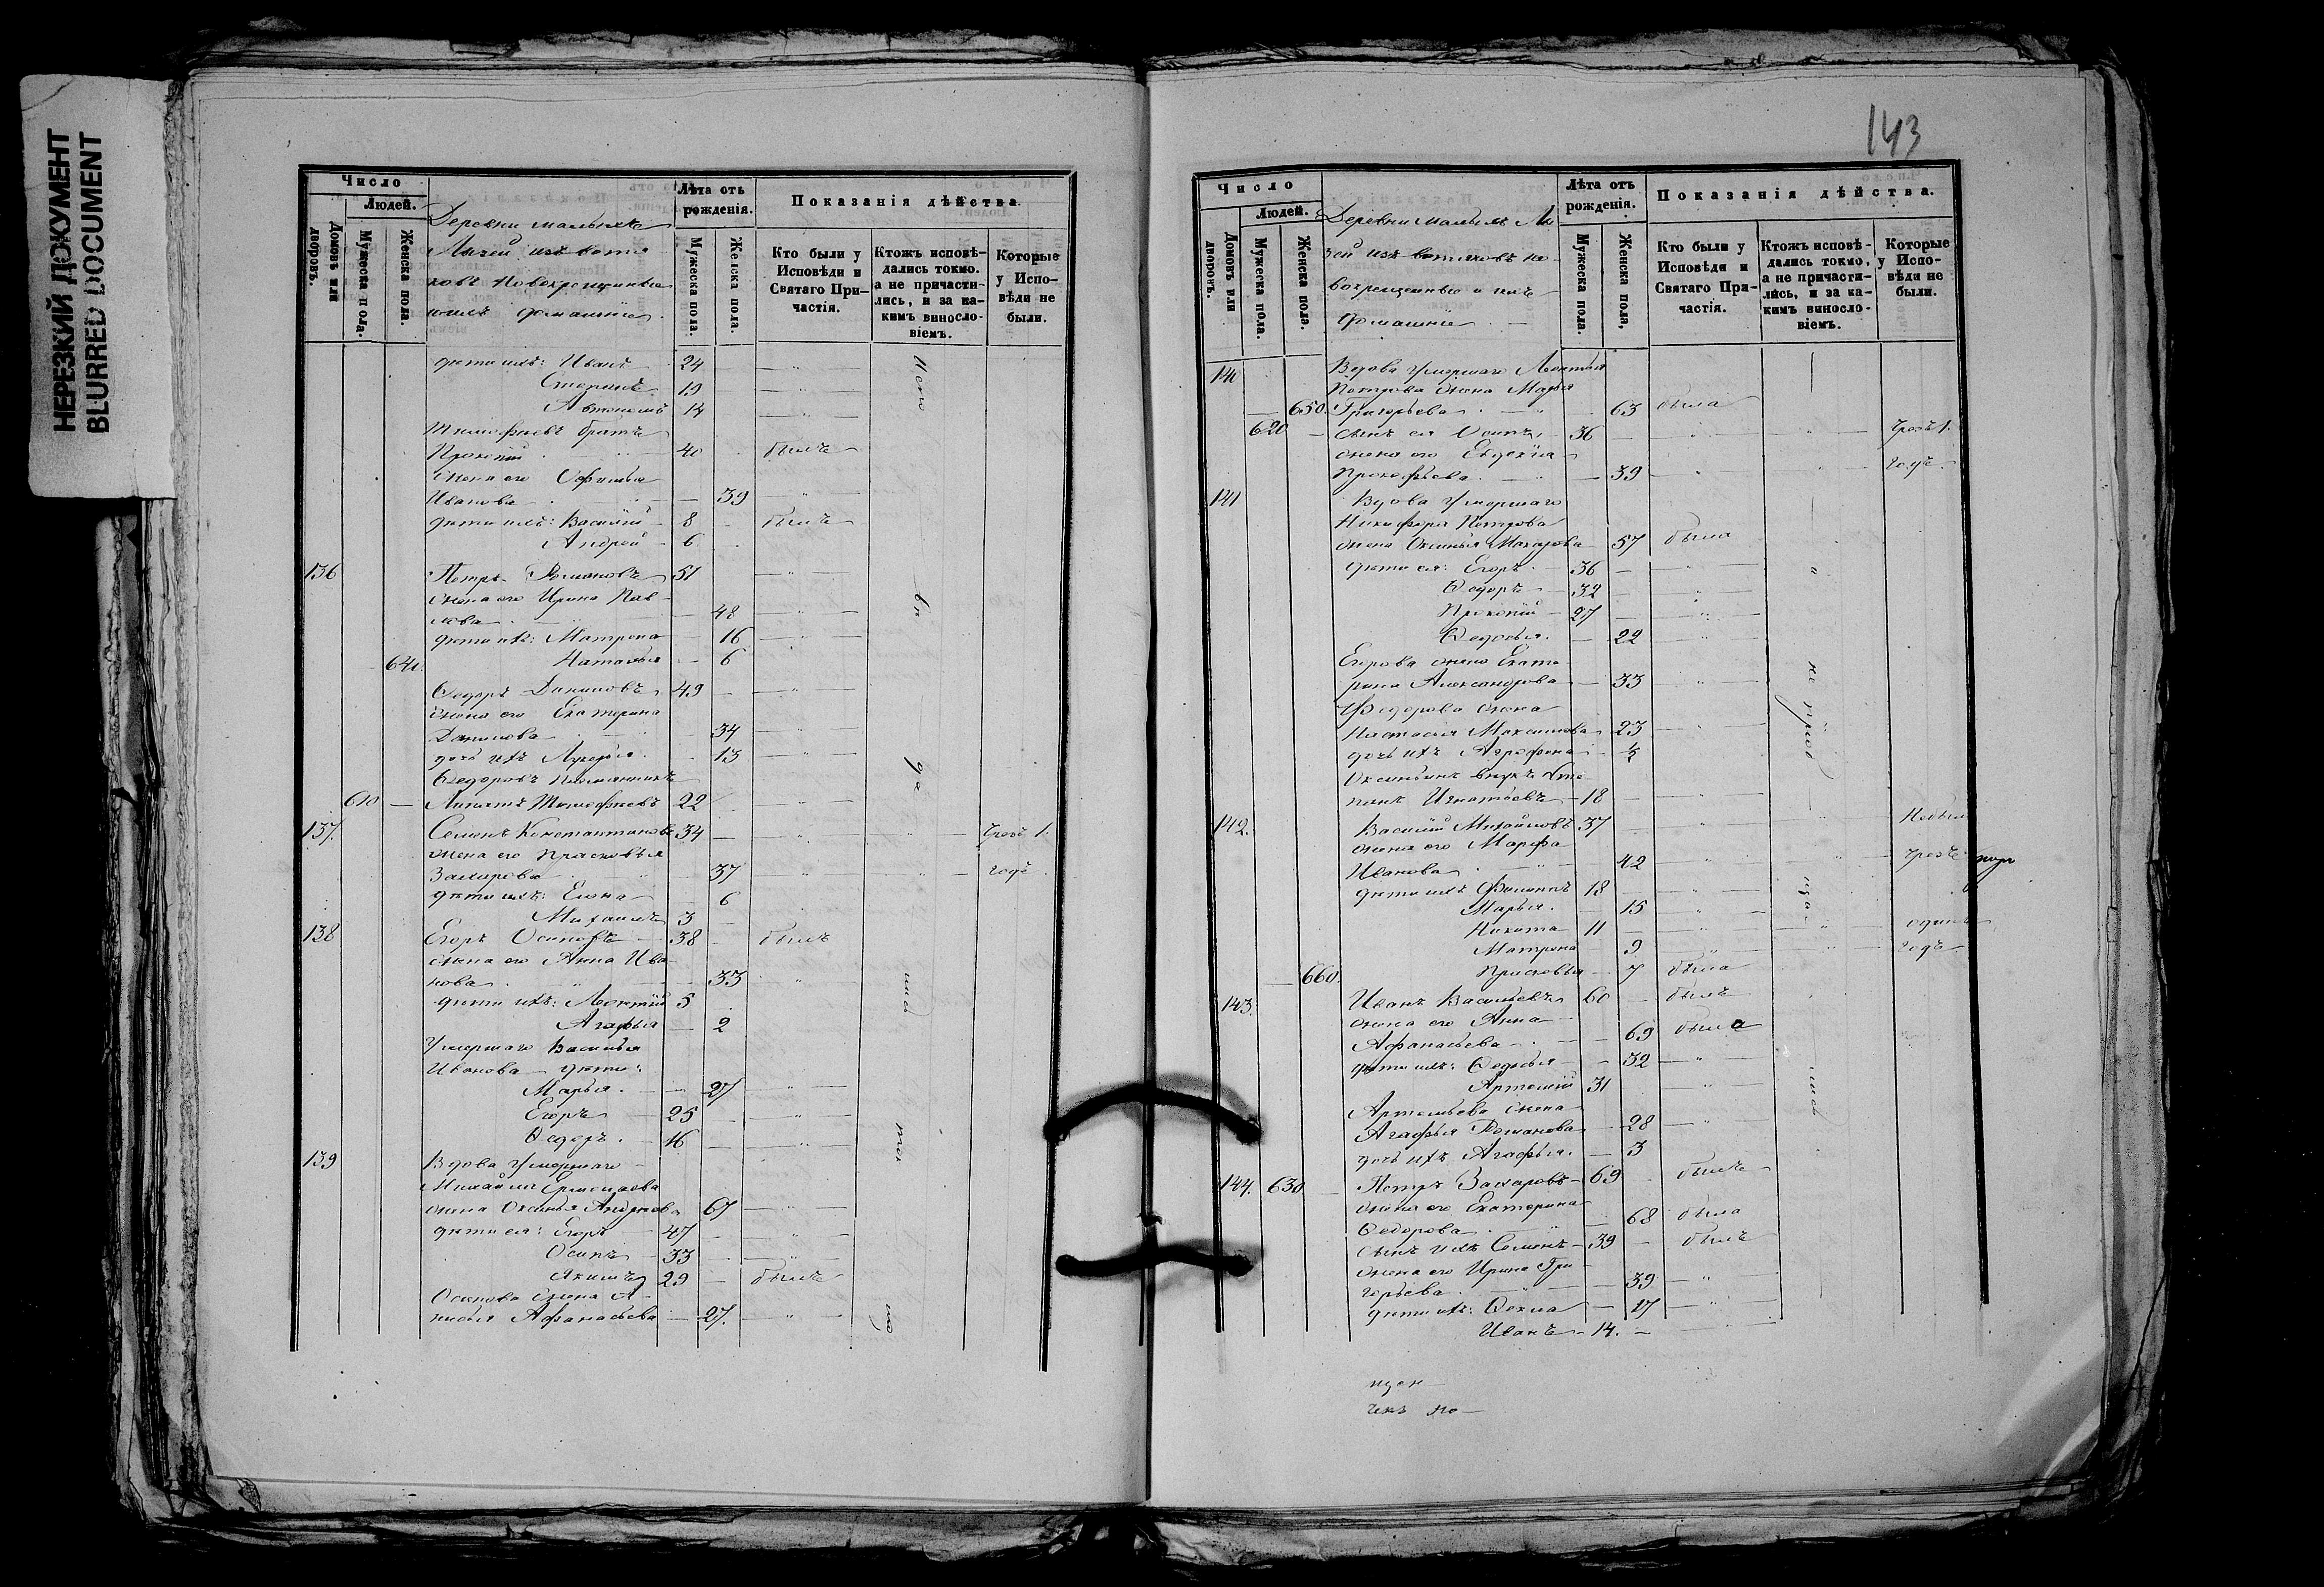 НЕРЕЗКИЙ ДОКУМЕНТ
BLURRED DOCUMENT
Число
Людей.
Домовъ или дворовъ.
Мужеска пола.
Женска пола.
Деревни малыхъ
Лызей изъ вотя-
ковъ Новокрещенные
и ихъ домашніе.
Лѣта отъ рожденія.
Мужеска пола.
Женска пола.
Показанія дѣйства.
Кто были у Исповѣди и Святаго Причастія.
Ктожъ исповѣдались токмо, а не причастились, и за какимъ винословіемъ.
Которые у Исповѣди не были.
дѣти ихъ: Иванъ 24 — " —
Степанъ 19 — " —
Автономъ 14 — " —
Тимофѣевъ братъ
Прокопій 40 былъ
жена его Софья
Иванова 39 "
дѣти ихъ: Василій 8 былъ
Андрей 6
136 Петръ Романовъ 51 — " —
жена его Ирина Пав-
лова 48 — " —
дѣти ихъ: Матрона 16 — " —
640. Наталья 6
Ѳедоръ Даниловъ 49 — " —
жена его Екатерина
Данилова 34 — " —
дочь ихъ Лукерья 13 — " —
Ѳедоровъ племянникъ
610 — Тимофѣевъ 22 "
137. Семенъ Константиновъ 34 — " — " — чрезъ 1.
жена его Прасковья
Захарова 37 — " — " — годъ.
дѣти ихъ: Елена 6
Михаилъ 3
138 Егоръ Осиповъ 38 былъ
жена его Анна Ива-
нова 33 "
дѣти ихъ: Леонтій 5
Агафья 2
Умершаго Василья
Иванова дѣти:
Марья. 27 "
Егоръ 25 — " —
Ѳедоръ. 16 — " —
139 Вдова умершаго
Михайла Ермолаева
жена Оксинья Андреева 67 — " —
дѣти ея: Егоръ 47 — " —
Осипъ 33 — " —
Якимъ 29 былъ
Осипова жена А-
нисья Афанасьева 27. — " —
143
Число
Людей.
Домовъ или дворовъ.
Мужеска пола.
Женска пола.
Деревни малыхъ Лы
зей изъ вотяковъ но-
вокрещенные и ихъ
домашніе.
Лѣта отъ рожденія.
Мужеска пола.
Женска пола,
Показанія дѣйства.
Кто были у Исповѣди и Святаго Причастія.
Ктожъ исповѣдались токмо, а не причастились, и за какимъ винословіемъ.
Которые у Исповѣди не были.
140 Вдова умершаго Леонтья
Петрова жена Марья
650. Григорьева 63 была
620 — сынъ ея Осипъ 36 — " — " — чрезъ 1.
жена его Евдокія
Прокофьева 39 — " — " — годъ.
141 Вдова умершаго
Никифора Петрова
жена Оксинья Макарова 57 была
дѣти ея: Егоръ 36 — " —
Ѳедоръ 32 — " —
Прокопій 27 — " —
Ѳедосья. 22 "
Егорова жена Екате-
рина Александрова 33 — " —
Ѳедорова жена
Настасья Максимова 23 — " —
дочь ихъ Агрофена
Оксиньинъ внукъ Сте
панъ Игнатьевъ 18 — " —
142. Василій Михайловъ 37 — " — " — Небыли
жена его Марфа
Иванова 42 — " — " — чрезъ
дѣти ихъ Филиппъ 18 — " —
Марья. 15 — " —
Никита 11 — " — " — одинъ
Матрона 9 — " — " — годъ
660. Прасковья 7 была
143. Иванъ Васильевъ 60 былъ
жена его Анна
Афанасьева 69 была
дѣти ихъ: Ѳедосья 32 — " —
Артемій 31 — " —
Артемьева жена
Агафья Романова 28 — " —
дочь ихъ Агафья. 3
144. 630 Петръ Захаровъ 69 былъ
жена его Екатерина
Ѳедорова 68 была
сынъ ихъ Семенъ 39 былъ
жена его Ирина Гри-
горьева 39 — " —
дѣти ихъ: Ѳекла 17 — " —
Иванъ 14.